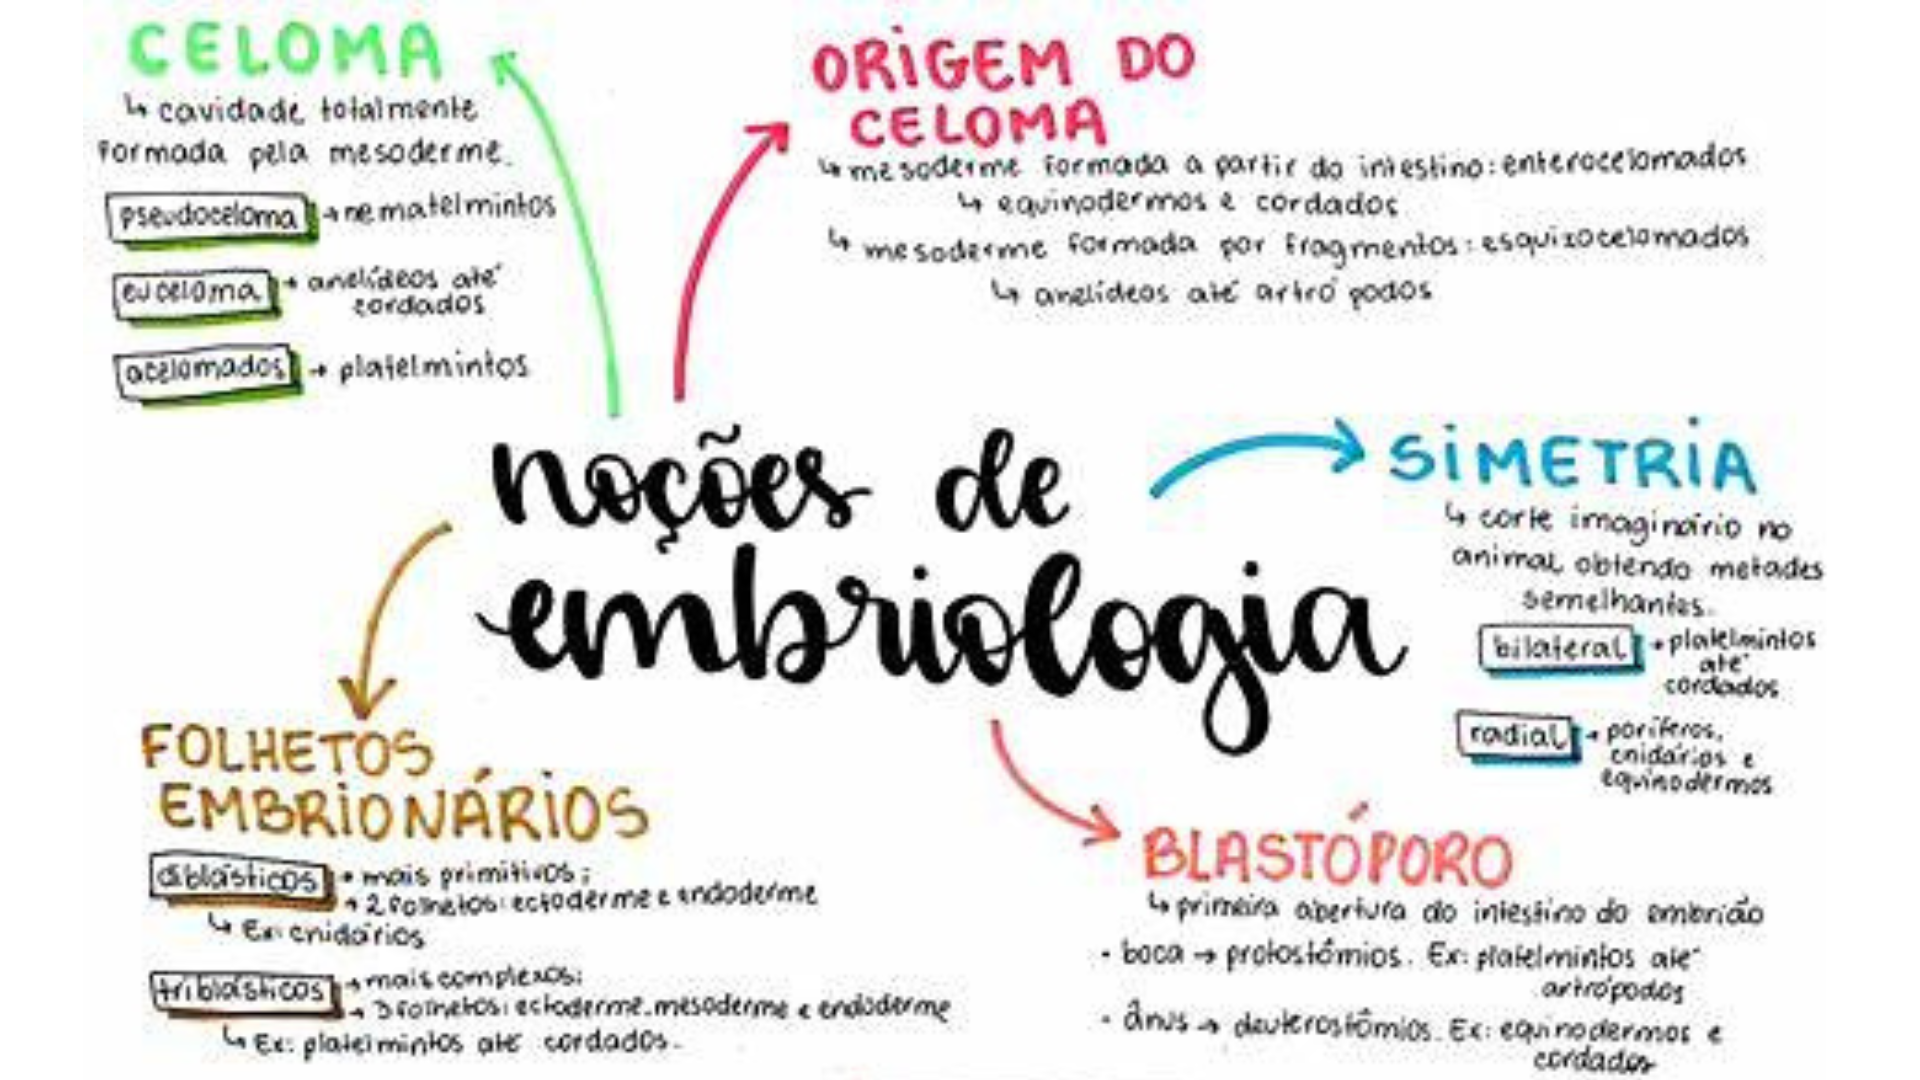 CELOMA
↳ cavidade totalmente
formada pela mesoderme.
pseudoceloma → nematelmintos
euceloma → anelídeos até
cordados
acelomados → platelmintos
ORIGEM DO
CELOMA
↳ mesoderme formada a partir do intestino: enterocelomados
↳ equinodermos e cordados
↳ mesoderme formada por fragmentos: esquizocelomados
↳ anelídeos até artrópodos
noções de
embriologia
SIMETRIA
↳ corte imaginário no
animal, obtendo metades
semelhantes.
bilateral → platelmintos
até
cordados
radial → poríferos,
cnidários e
equinodermos
FOLHETOS
EMBRIONÁRIOS
diblásticos → mais primitivos;
→ 2 folhetos: ectoderme e endoderme
↳ Ex: cnidários
triblásticos → mais complexos;
→ 3 folhetos: ectoderme, mesoderme e endoderme
↳ Ex: platelmintos até cordados.
BLASTÓPORO
↳ primeira abertura do intestino do embrião
• boca → protostômios. Ex: platelmintos até
artrópodos
• ânus → deuterostômios. Ex: equinodermos e
cordados